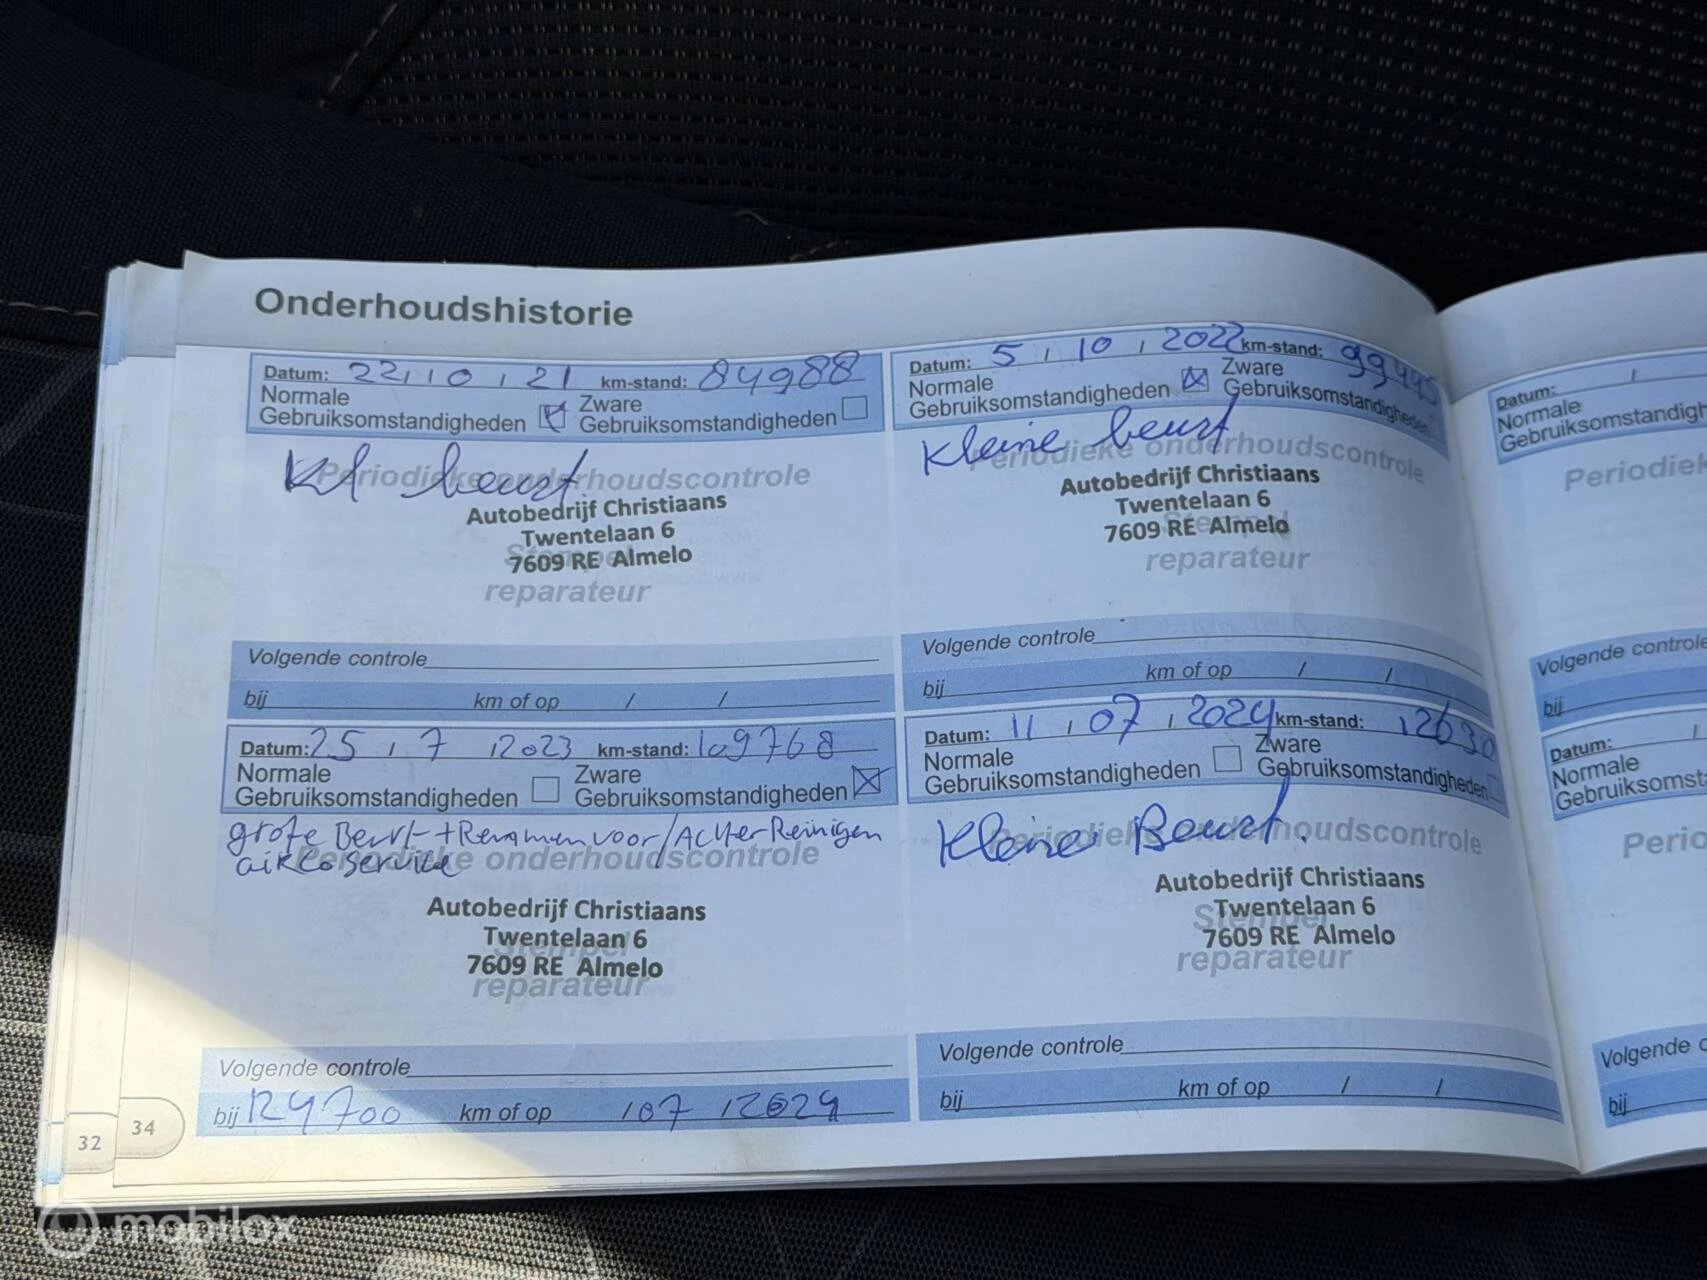 Onderhoudshistorie
Datum: 22, 10, 21 km-stand: 84988
Normale Gebruiksomstandigheden Zware Gebruiksomstandigheden
Kl beurt
Periodieke onderhoudscontrole
Autobedrijf Christiaans
Twentelaan 6
7609 RE Almelo
Stempel
reparateur
Volgende controle
bij km of op / /
Datum: 5, 10, 2022 km-stand: 99445
Normale Gebruiksomstandigheden Zware Gebruiksomstandigheden
Kleine beurt
Periodieke onderhoudscontrole
Autobedrijf Christiaans
Twentelaan 6
7609 RE Almelo
Stempel
reparateur
Volgende controle
bij km of op / /
Datum: 25, 7, 2023 km-stand: 109768
Normale Gebruiksomstandigheden Zware Gebruiksomstandigheden
grote Beurt + Remmen voor/Achter Reinigen
airco service
Periodieke onderhoudscontrole
Autobedrijf Christiaans
Twentelaan 6
7609 RE Almelo
Stempel
reparateur
Volgende controle
bij 124700 km of op /07 /2024
Datum: 11, 07, 2024 km-stand:
Normale Gebruiksomstandigheden Zware Gebruiksomstandigheden
Kleine Beurt.
Periodieke onderhoudscontrole
Autobedrijf Christiaans
Twentelaan 6
7609 RE Almelo
Stempel
reparateur
Volgende controle
bij km of op / /
Datum: /
Normale
Periodiek
Volgende controle
bij
Datum: /
Normale
Perio
Volgende
bij
32
34
mobilox